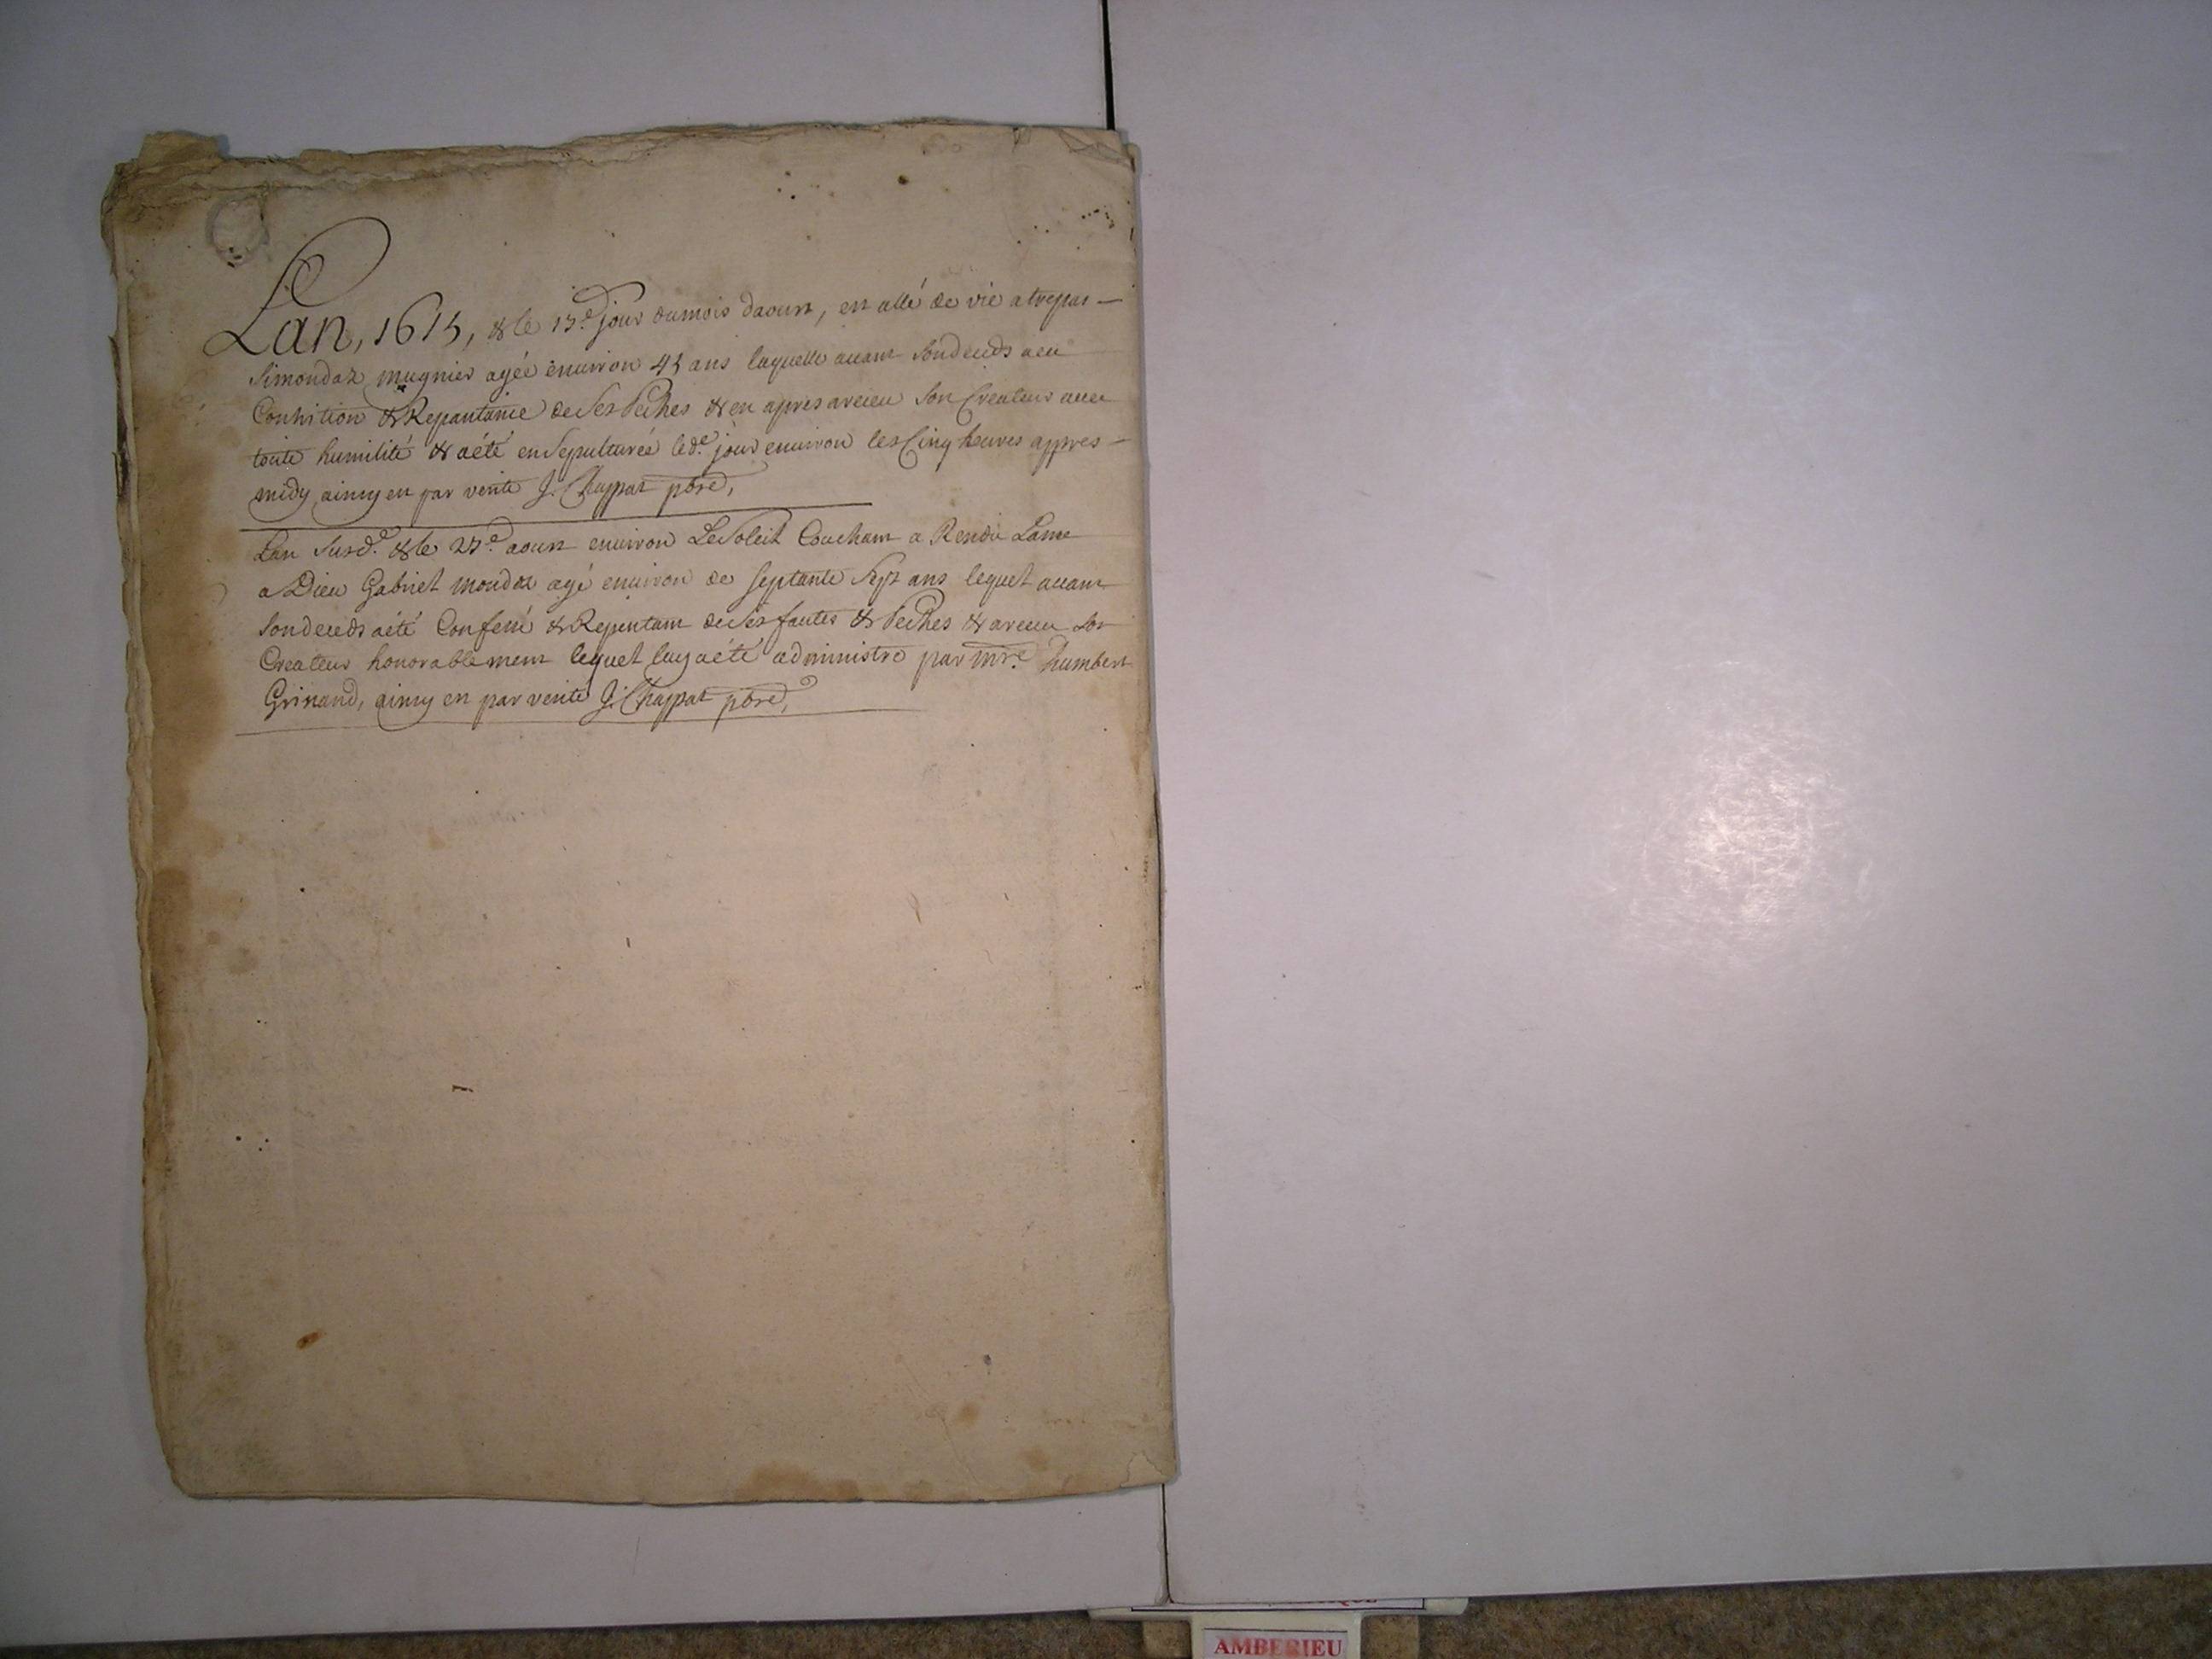 Lan, 1615, & le 15.e jour dumois daoust, est allé de vie a trepas —
Simondaz mugnier agée enuiron 45 ans laquelle auant Sondeceds aeu
Contrition & Repantance deSes Peches & en apres areceu Son Createur auec
toute humilité & aété enSepulturée led.e jour enuiron les Cinq heures appres —
midy ainsy est par verité J. Chappat pbre,
Lan Susd.e & le 27.e aoust enuiron LeSoleil Couchant a Rendu Lame
a Dieu Gabriel mondoz agé enuiron de Septante Sept ans lequel auant
Sondeceds aété Confessé & Repentant deSes fautes & Peches & areceu Son
Createur honorablement lequel luy aété administré par mr.e humbert
Grinand, ainsy est par verité J. Chappat pbre,
AMBERIEU